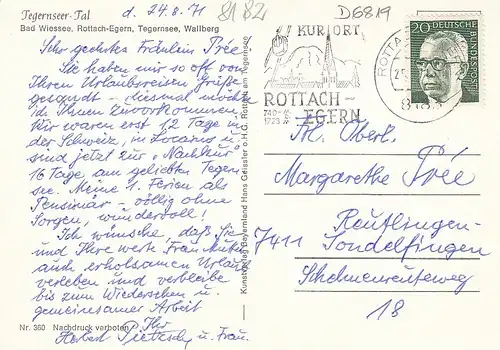 Tegernseer-Tal d. 24.8.71
Bad Wiessee, Rottach-Egern, Tegernsee, Wallberg
Sehr geehrtes Fräulein Prée!
Sie haben mir so oft von
Ihren Urlaubsreisen Grüße
gesandt – diesmal möchte
ich Ihnen zuvorkommen.
Wir waren erst 12 Tage in
der Schweiz, in Locarno u.
sind jetzt zur „Nachkur"
16 Tage am geliebten Tegern
see. Meine 1. Ferien als
Pensionär – völlig ohne
Sorgen, wundervoll!
Ich wünsche, daß Sie
und Ihre werte Frau Mutter
auch erholsamen Urlaub
verleben und verbleibe
bis zum Wiedersehen u.
gemeinsamer Arbeit
Ihr
Herbert Pietzsch u. Frau.
Nr. 360 Nachdruck verboten
Kunstverlag Bayernland Hans Geissler o.H.G. Rottach am Tegernsee
8182
D6819
KURORT
ROTTACH-
EGERN
20
DEUTSCHE BUNDESPOST
Frl. Oberl.
Margarethe Prée
7411 Reutlingen-
Sondelfingen
Schelmenreuteweg
18